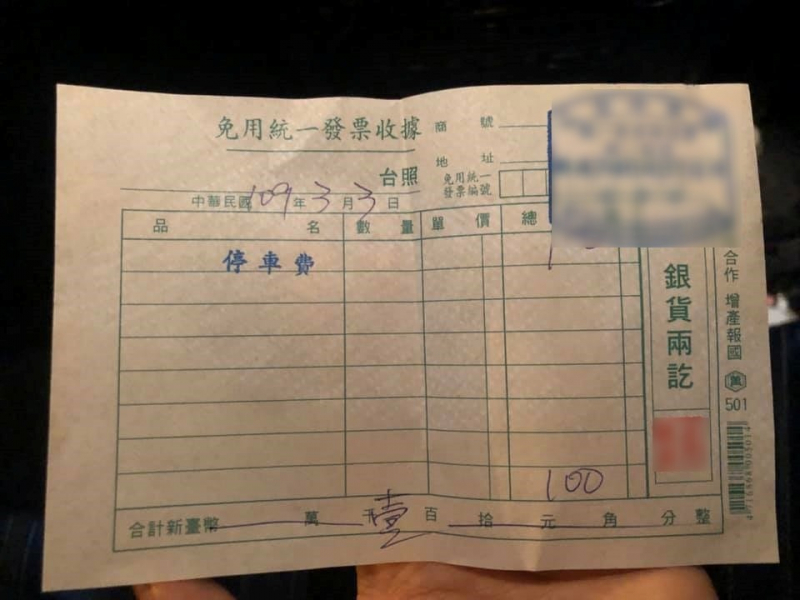 免用統一發票收據
商號
地址
台照
免用統一
發票編號
中華民國109年3月3日
品名 數量 單價 總
停車費
100
合計新臺幣 萬 千壹百 拾 元 角 分 整
銀貨兩訖
合作 增產報國
萬
501